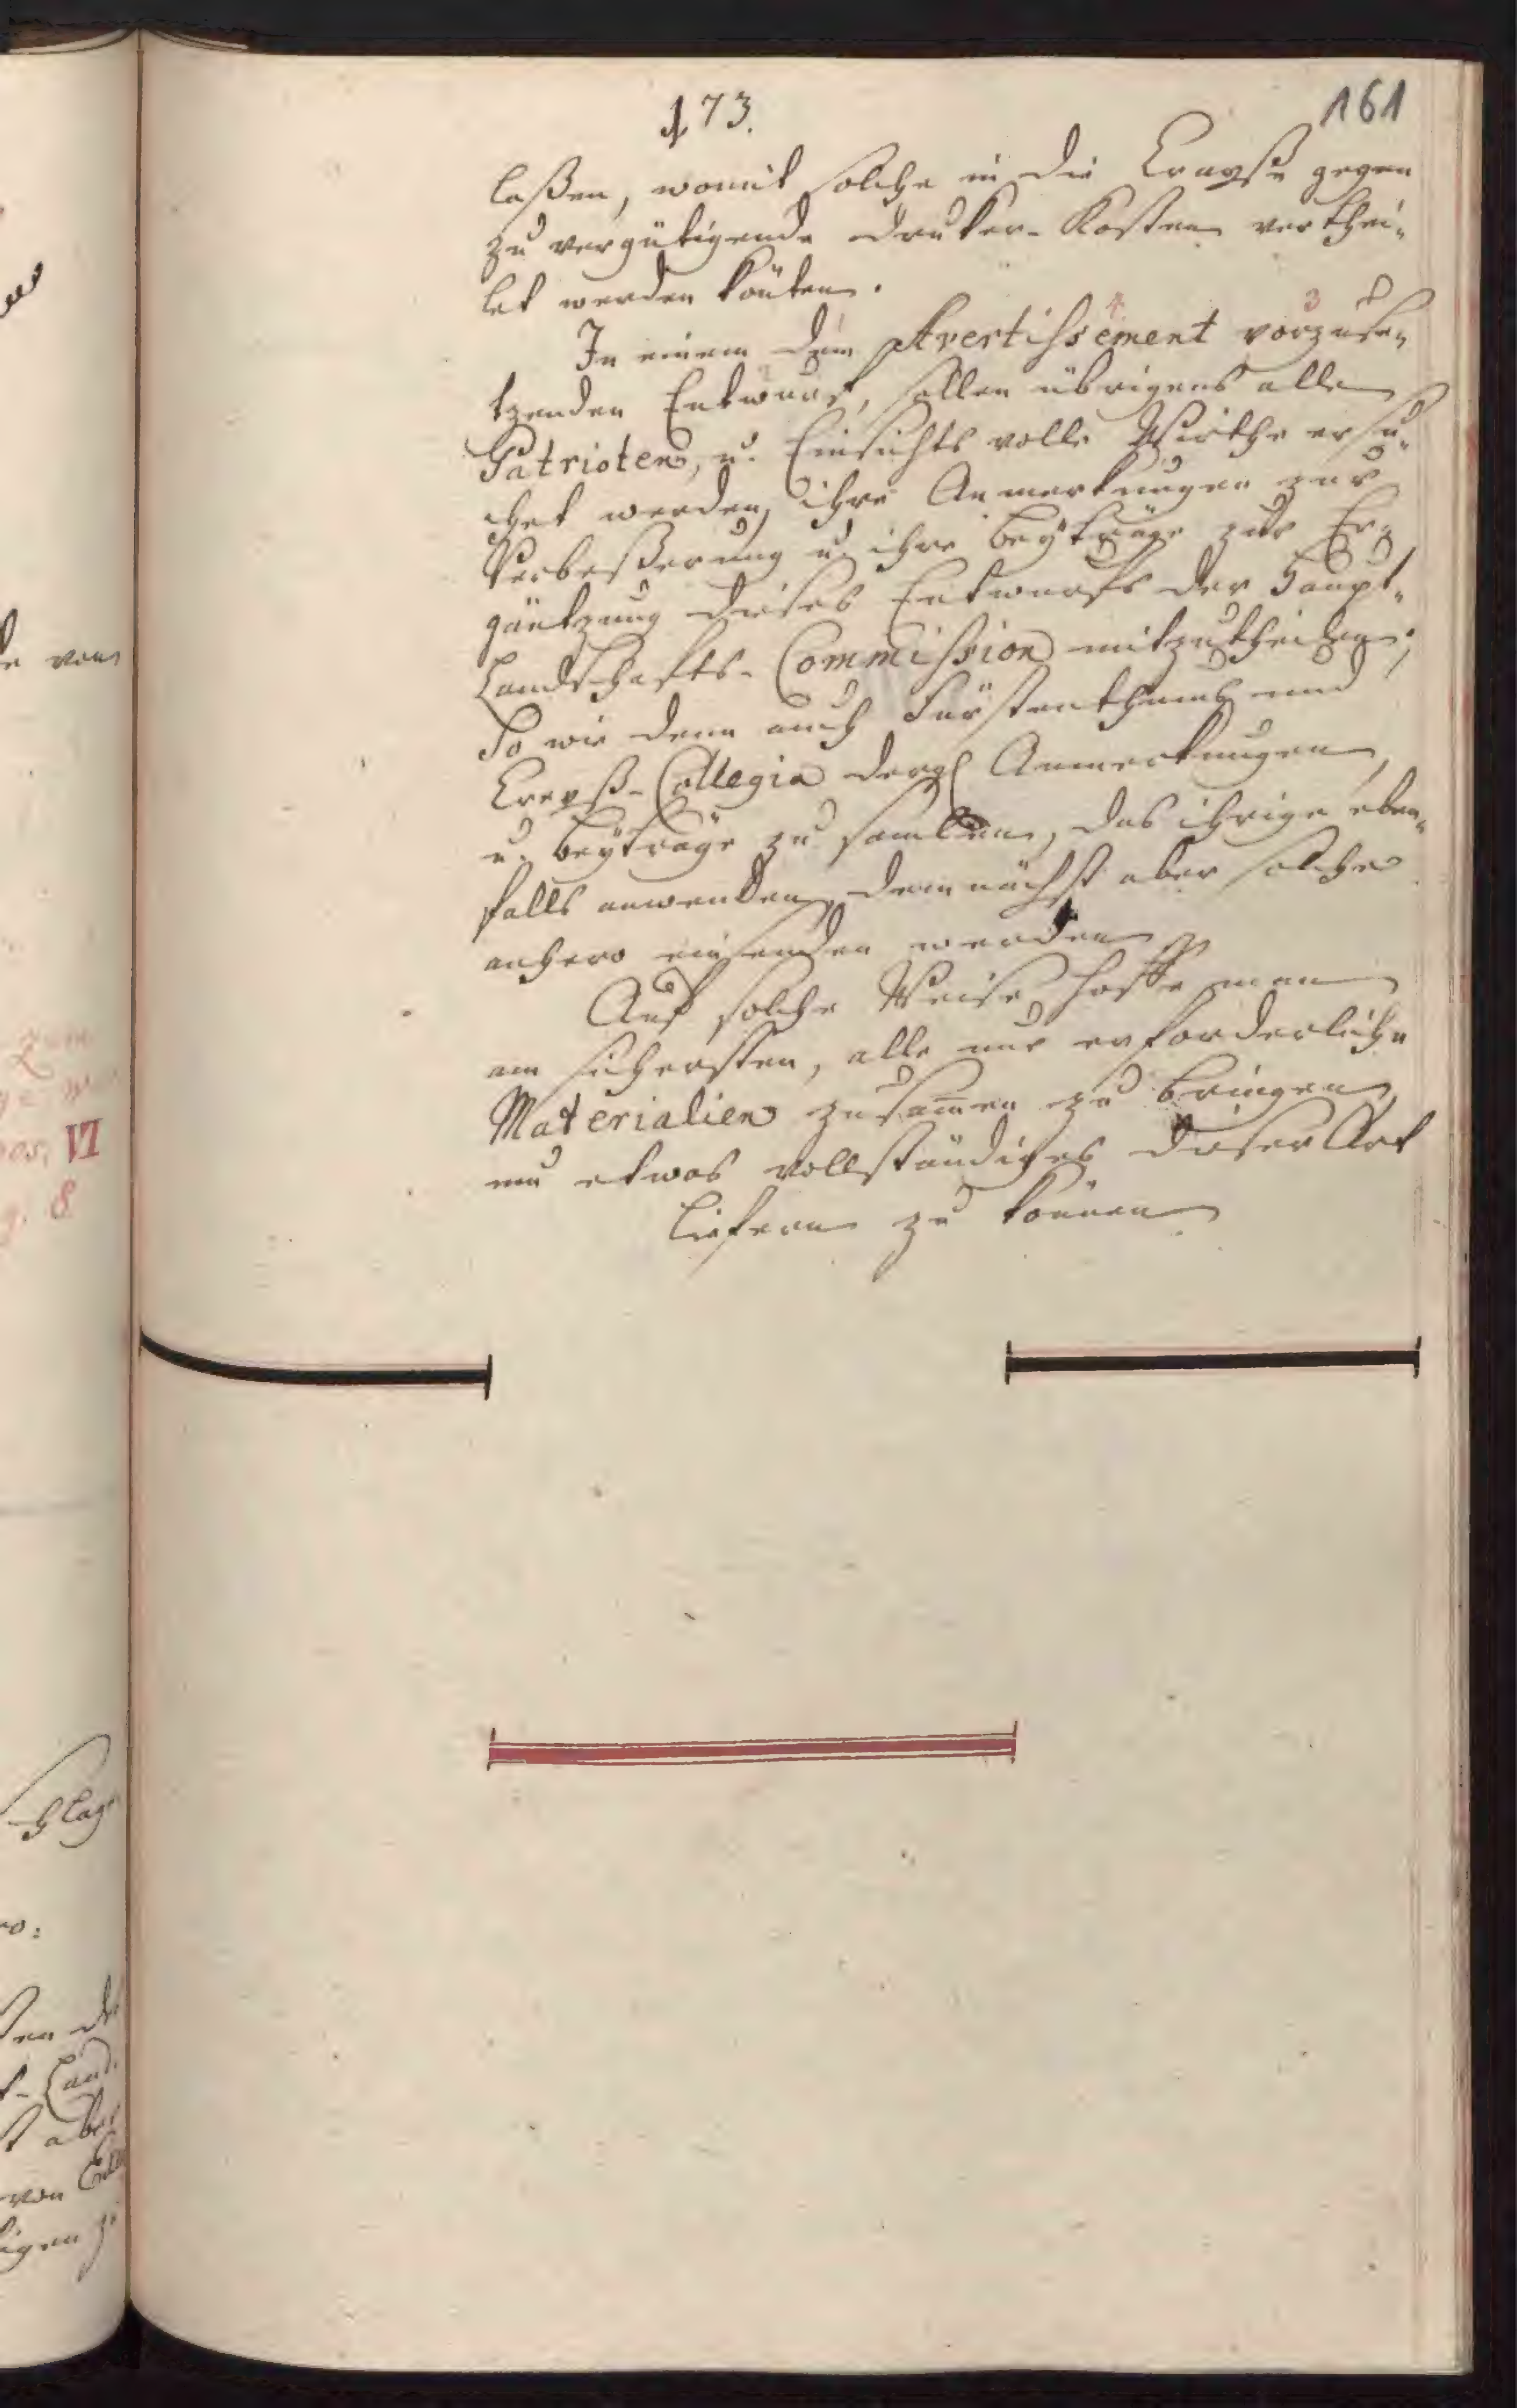 173.
161
laßen, womit solche in die Crayße gegen
zu vergütigende Druker-Kosten verthei-
let werden könten.
In einem dem Avertissement vorzuse-
4 3
tzenden Entwurf, sollen übrigens alle
Patrioten, u. Einsichts volle Wirthe ersu-
chet werden, ihre Anmerkungen zur
Verbeßerung u. ihre Beyträge zur Er-
gäntzung dieses Entwurfs der Haupt-
Landschafts-Commission mitzutheilen;
So wie denn auch Fürstenthums und
Creyß-Collegia dergl Anmerkungen,
u. Beyträge zu samlen, das ihrige eben-
falls anwenden, demnächst aber solche
anhero einsenden werden
Auf solche Weise hoffe man
am sichersten, alle nur erforderliche
Materialien zusam̅en zu bringen,
um etwas vollständiges dieser Art
liefern zu können